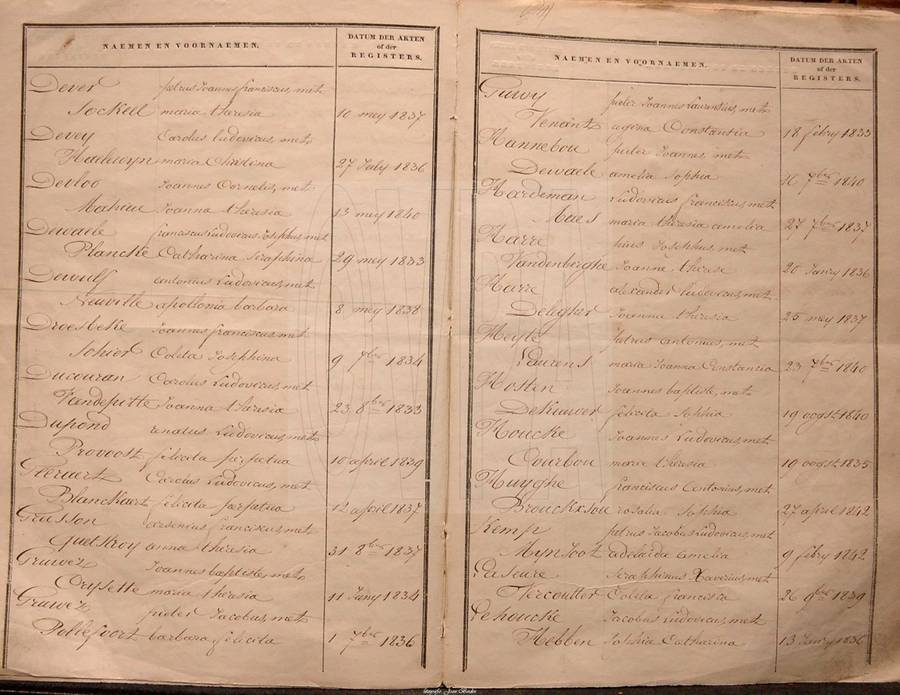 NAEMEN EN VOORNAEMEN.
DATUM DER AKTEN
of der
REGISTERS.
Dever petrus Joannes franciscus, met
Jockell maria theresia 10 mey 1837
Devey Carolus Ludovicus, met
Haelewyn maria Christina 27 July 1836
Devloo Joannes Cornelis, met
Mahieu Joanna theresia 13 mey 1840
Dewaele franciscus Ludovicus Josephus met
Plancke Catharina Seraphina 29 mey 1833
Dewulf antonius Ludovicus, met
Neuville apollonia barbara 8 mey 1838
Droesbeke Joannes franciscus, met
Sohier Coleta Josephina 9 7bre 1834
Ducouran Carolus Ludovicus, met
Vandeputte Joanna theresia 23 8bre 1833
Dupond renatus Ludovicus, met
Provoost felicita perpetua 10 april 1839
Carolus Ludovicus, met
Blanckaert felicita perpetua 12 april 1837
arsenius franciscus, met
Quetstroy anna theresia 31 8bre 1837
Gruwez Joannes baptiste, met
Crysette maria theresia 11 Juny 1834
Gruwez pieter Jacobus, met
barbara felicita 1 7bre 1836
NAEMEN EN VOORNAEMEN.
DATUM DER AKTEN
of der
REGISTERS.
Guwy pieter Joannes Laurentius, met
Tenant regina Constantia 18 febry 1833
Hannebou pieter Joannes, met
Dewaele amelia Sophia 16 7bre 1840
Hardeman Ludovicus franciscus, met
Maes maria theresia amelia 27 7bre 1837
Harre pius Josephus, met
Vandenberghe Joanne therese 20 Janry 1836
Harre alexander Ludovicus, met
Joanna theresia 25 mey 1837
petrus antonius, met
Laurens maria Joanna Constancia 23 7bre 1840
Hosten Joannes baptiste, met
Dekuwer felicita Sophia 19 oogst 1840
Houcke Joannes Ludovicus, met
Courbou marie theresia 19 oogst 1835
Huyghe franciscus Antonius, met
Brouckxsou rosalia Sophia 27 april 1842
Kemp petrus Jacobus Ludovicus, met
Mynsoot adelaida amelia 9 febry 1842
Laseure Seraphinus Xaverius, met
Vercoutter Coleta francisca 26 9bre 1839
Lehoucke Jacobus Ludovicus, met
Hebben Sophia Catharina 13 Janry 1836